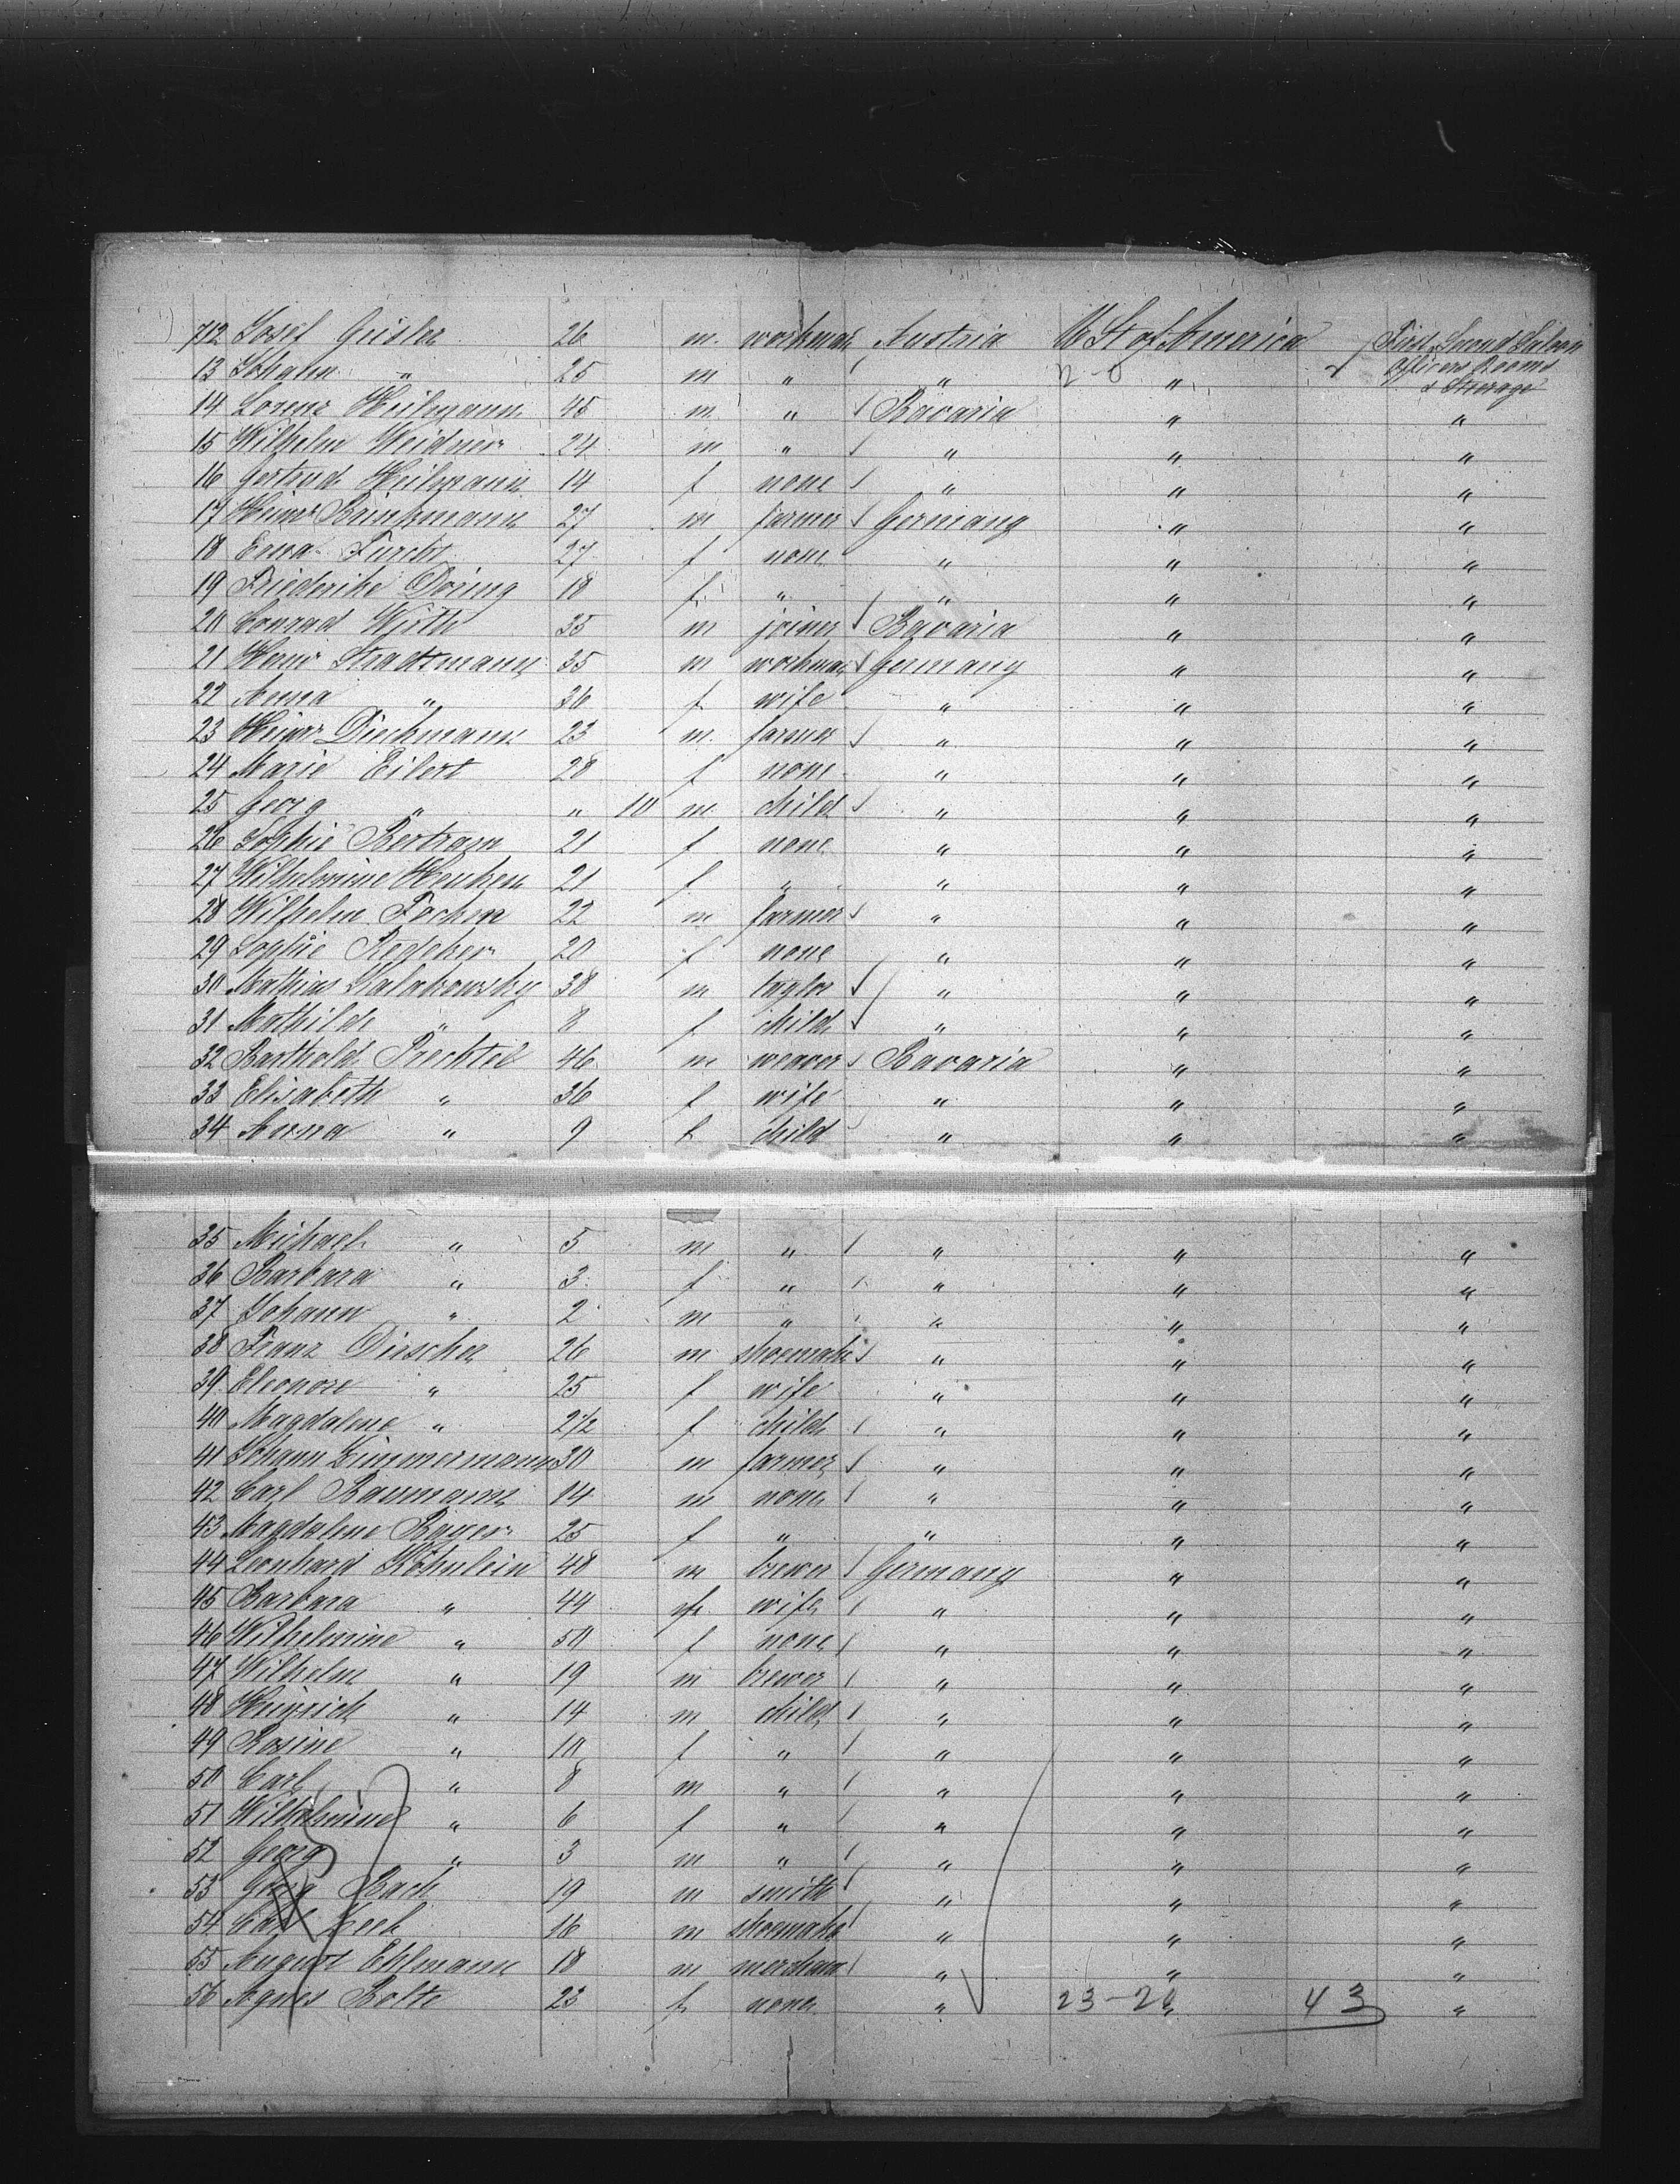 712 Josef Geisler 26 m. workman Austria U St of America First, Second Saloon
Officers Rooms
& Steerage
13 Johann " 25 m " " 2-0 "
14 Lorenz Heilmann 45 m " Bavaria " "
15 Wilhelm Weidner 24 m " " " "
16 Gertrud Heilmann 14 f none " " "
17 Heinr Brinkmann 27 m farmer Germany " "
18 Erna Furcht 27 f none " " "
19 Friederike Döring 18 f " " " "
20 Conrad Wirth 35 m joiner Bavaria " "
21 Heinr Stradtmann 35 m workman Germany " "
22 Anna " 36 f wife " " "
23 Heinr Dieckmann 23 m. farmer " " "
24 Marie Eilert 28 f none " " "
25 Georg " " 10 m child " " "
26 Sophie Bertram 21 f none " " "
27 Wilhelmine Henken 21 f " " " "
28 Wilhelm Focken 22 m farmer " " "
29 Sophie Redeker 20 f none " " "
30 Mathias Kalakowsky 38 m taylor " " "
31 Mathilde " 8 f child " " "
32 Barthold Prechtel 46 m weaver Bavaria " "
33 Elisabeth " 36 f wife " " "
34 Anna " 9 f child " " "
35 Michael " 5 m " " " "
36 Barbara " 3 f " " " "
37 Johann " 2 m " " " "
38 Franz Dirscher 26 m shoemake " " "
39 Eleonore " 25 f wife " " "
40 Magdalene " 2 1/2 f child " " "
41 Johann Zimmermann 30 m farmer " " "
42 Carl Baumann 14 m none " " "
43 Magdalene Bayer 25 f " " " "
44 Leonhard Köhnlein 48 m brewer Germany " "
45 Barbara " 44 f wife " " "
46 Wilhelmine " 50 f none " " "
47 Wilhelm " 19 m brewer " " "
48 Heinrich " 14 m child " " "
49 Rosine " 10 f " " " "
50 Carl " 8 m " " " "
51 Wilhelmine " 6 f " " " "
52 Georg " 3 m " " " "
53 Georg Bach 19 m smith " " "
54 Carl 16 m shoemake " " "
55 August Ehlmann 18 m merchan " " "
56 Agnes Bolte 23 f none " 23-20 " 43 "